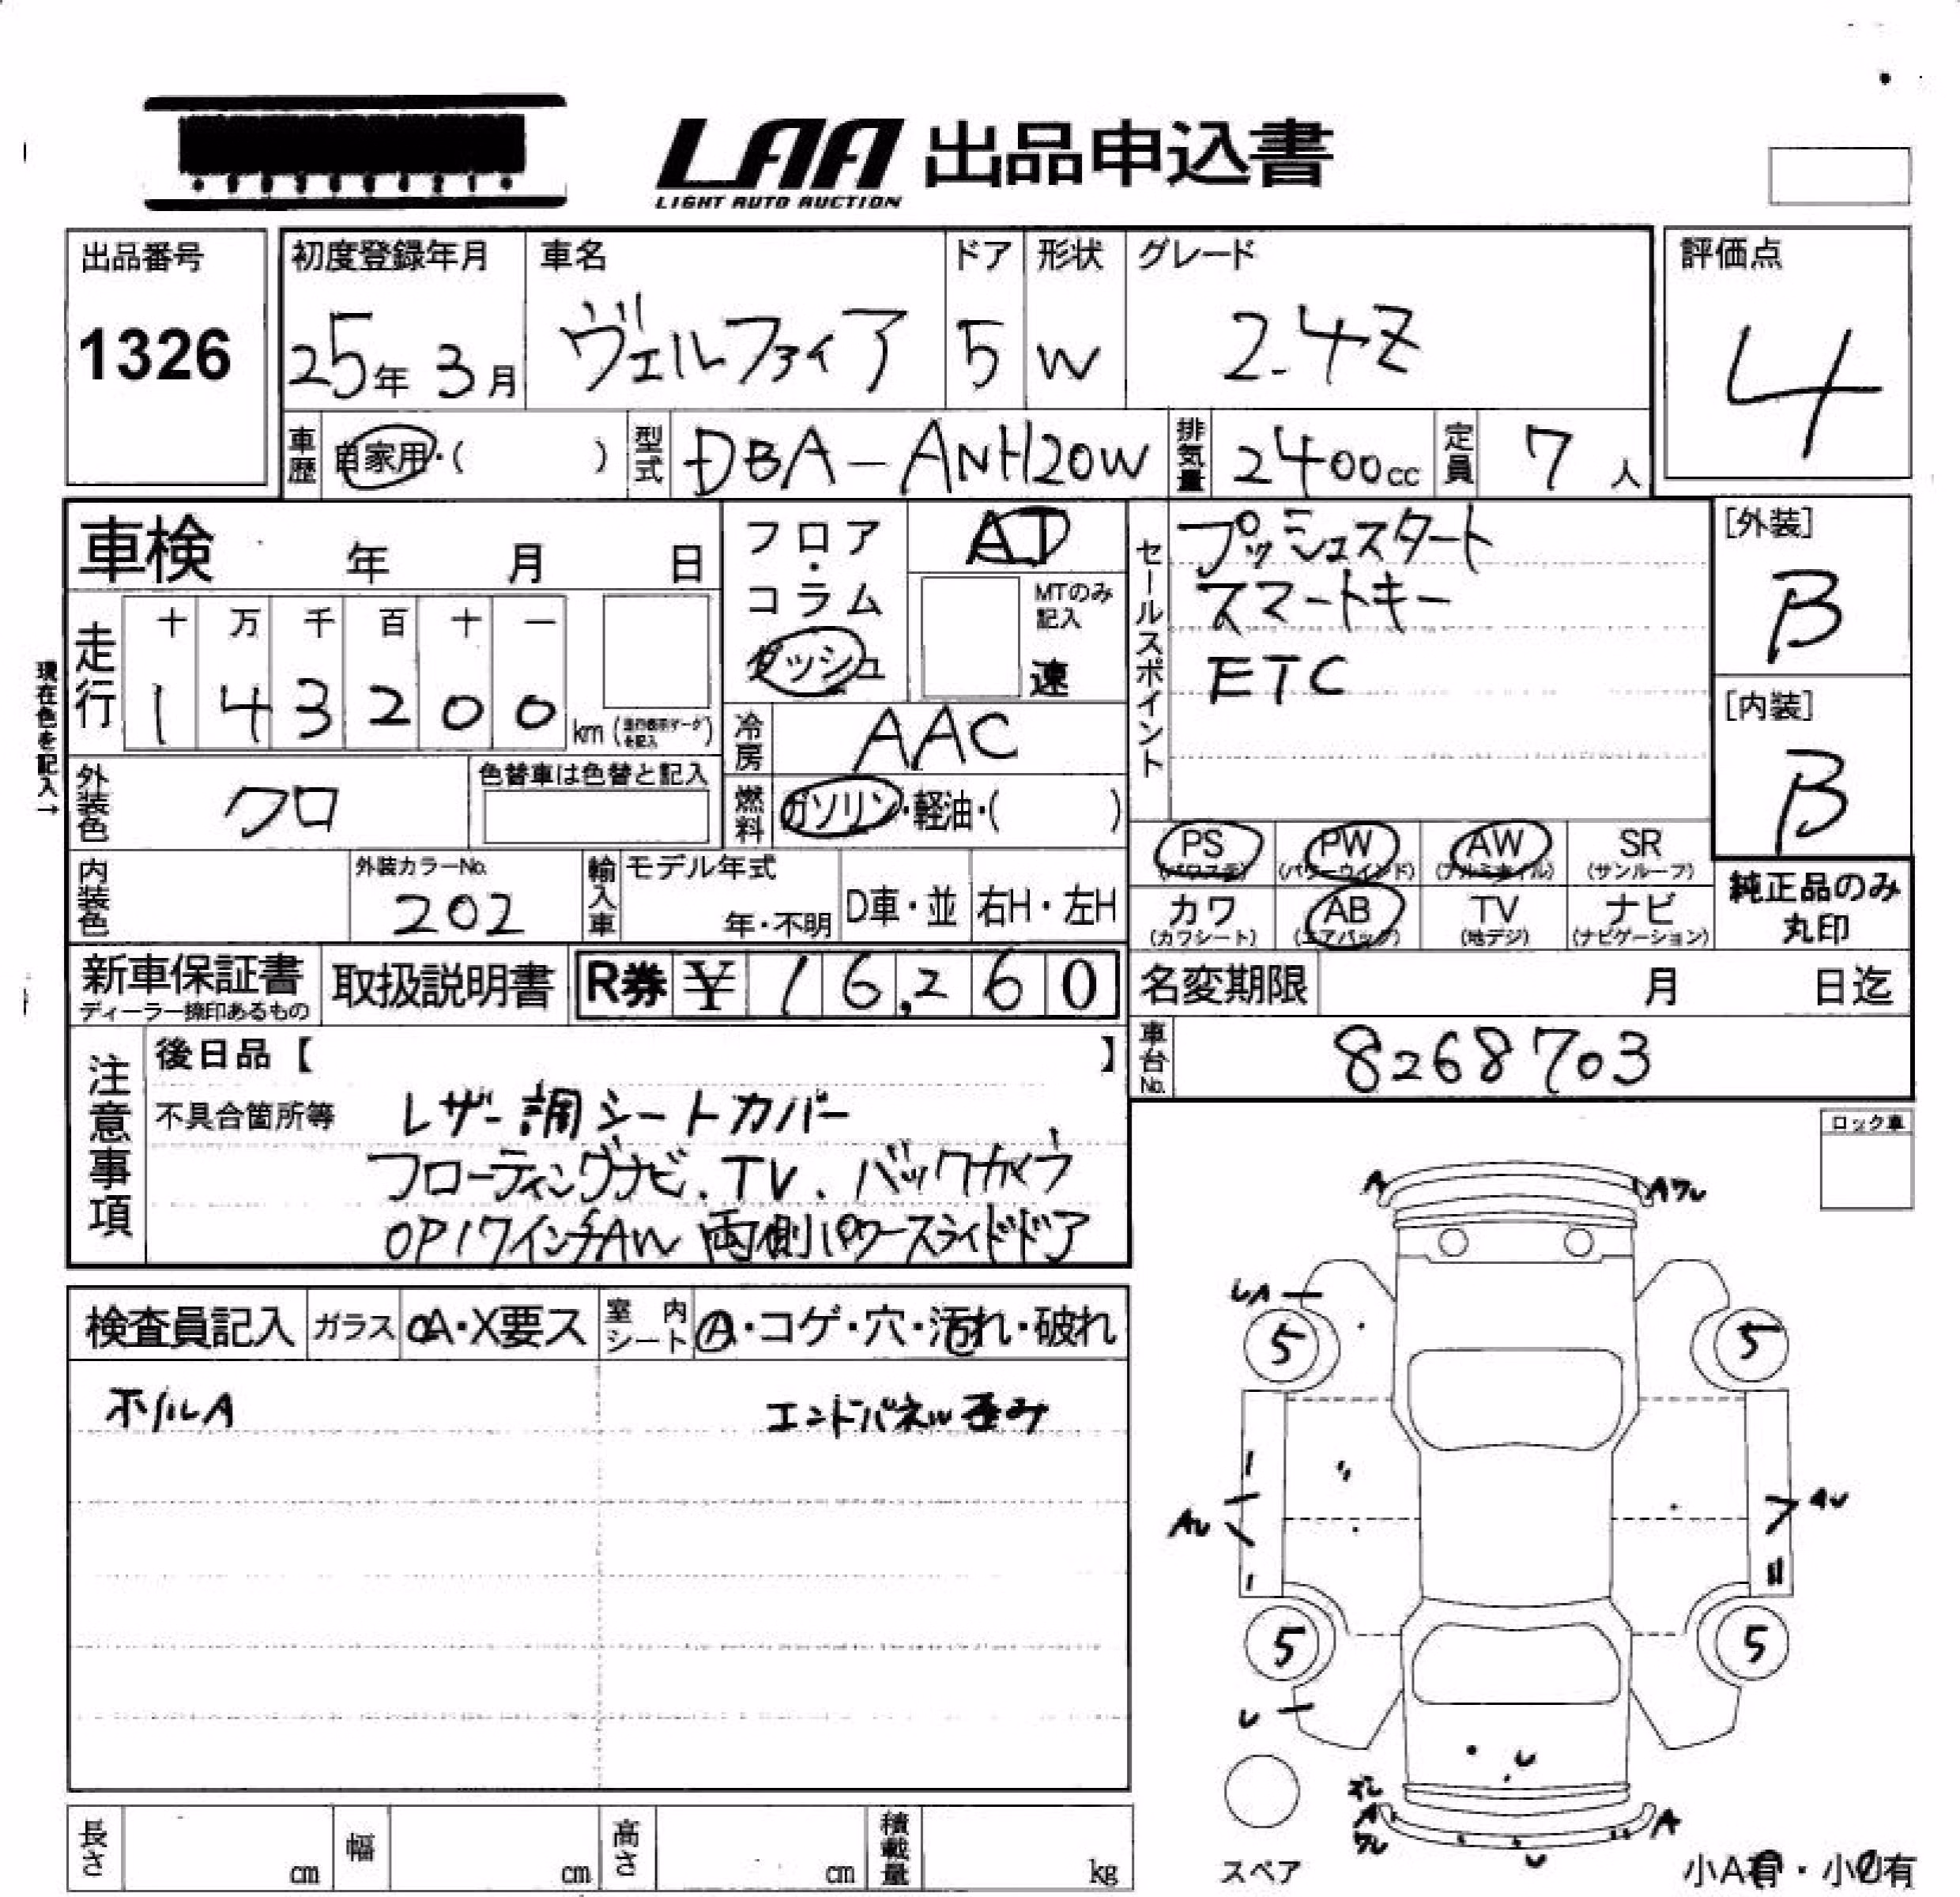 LAA 出品申込書
LIGHT AUTO AUCTION
出品番号
1326
初度登録年月
25年 3月
車名
ヴェルファイア
ドア
5
形状
W
グレード
2.4Z
評価点
4
車歴
自家用・( )
型式
DBA-ANH20W
排気量
2400cc
定員
7人
車検 年 月 日
現在色を記入→
走行
十 万 千 百 十 一
1 4 3 2 0 0 km
フロア・コラム
ダッシュ
AT
MTのみ記入
速
冷房
AAC
燃料
ガソリン・軽油・( )
セールスポイント
プッシュスタート
スマートキー
ETC
[外装]
B
[内装]
B
外装色
クロ
色替車は色替と記入
内装色
外装カラーNo.
202
輸入車
モデル年式
年・不明
D車・並
右H・左H
PS (パワステ)
PW (パワーウインド)
AW (アルミホイル)
SR (サンルーフ)
カワ (カワシート)
AB (エアバッグ)
TV (地デジ)
ナビ (ナビゲーション)
純正品のみ
丸印
新車保証書
ディーラー捺印あるもの
取扱説明書
R券 ¥ 16,260
名変期限 月 日迄
車台No.
8268703
注意事項
後日品【 】
不具合箇所等
レザー調シートカバー
フローティングナビ.TV.バックカメラ
OP17インチAW 両側パワースライドドア
ロック車
検査員記入
ガラス
A・X要ス
室内シート
A・コゲ・穴・汚れ・破れ
ホイルA
エンドパネル歪み
A
Aワレ
LA
5
5
AU
AU
5
5
U
U
ズレ
A
ワレ
A
U
スペア
小A有・小U有
長さ cm
幅 cm
高さ cm
積載量 kg